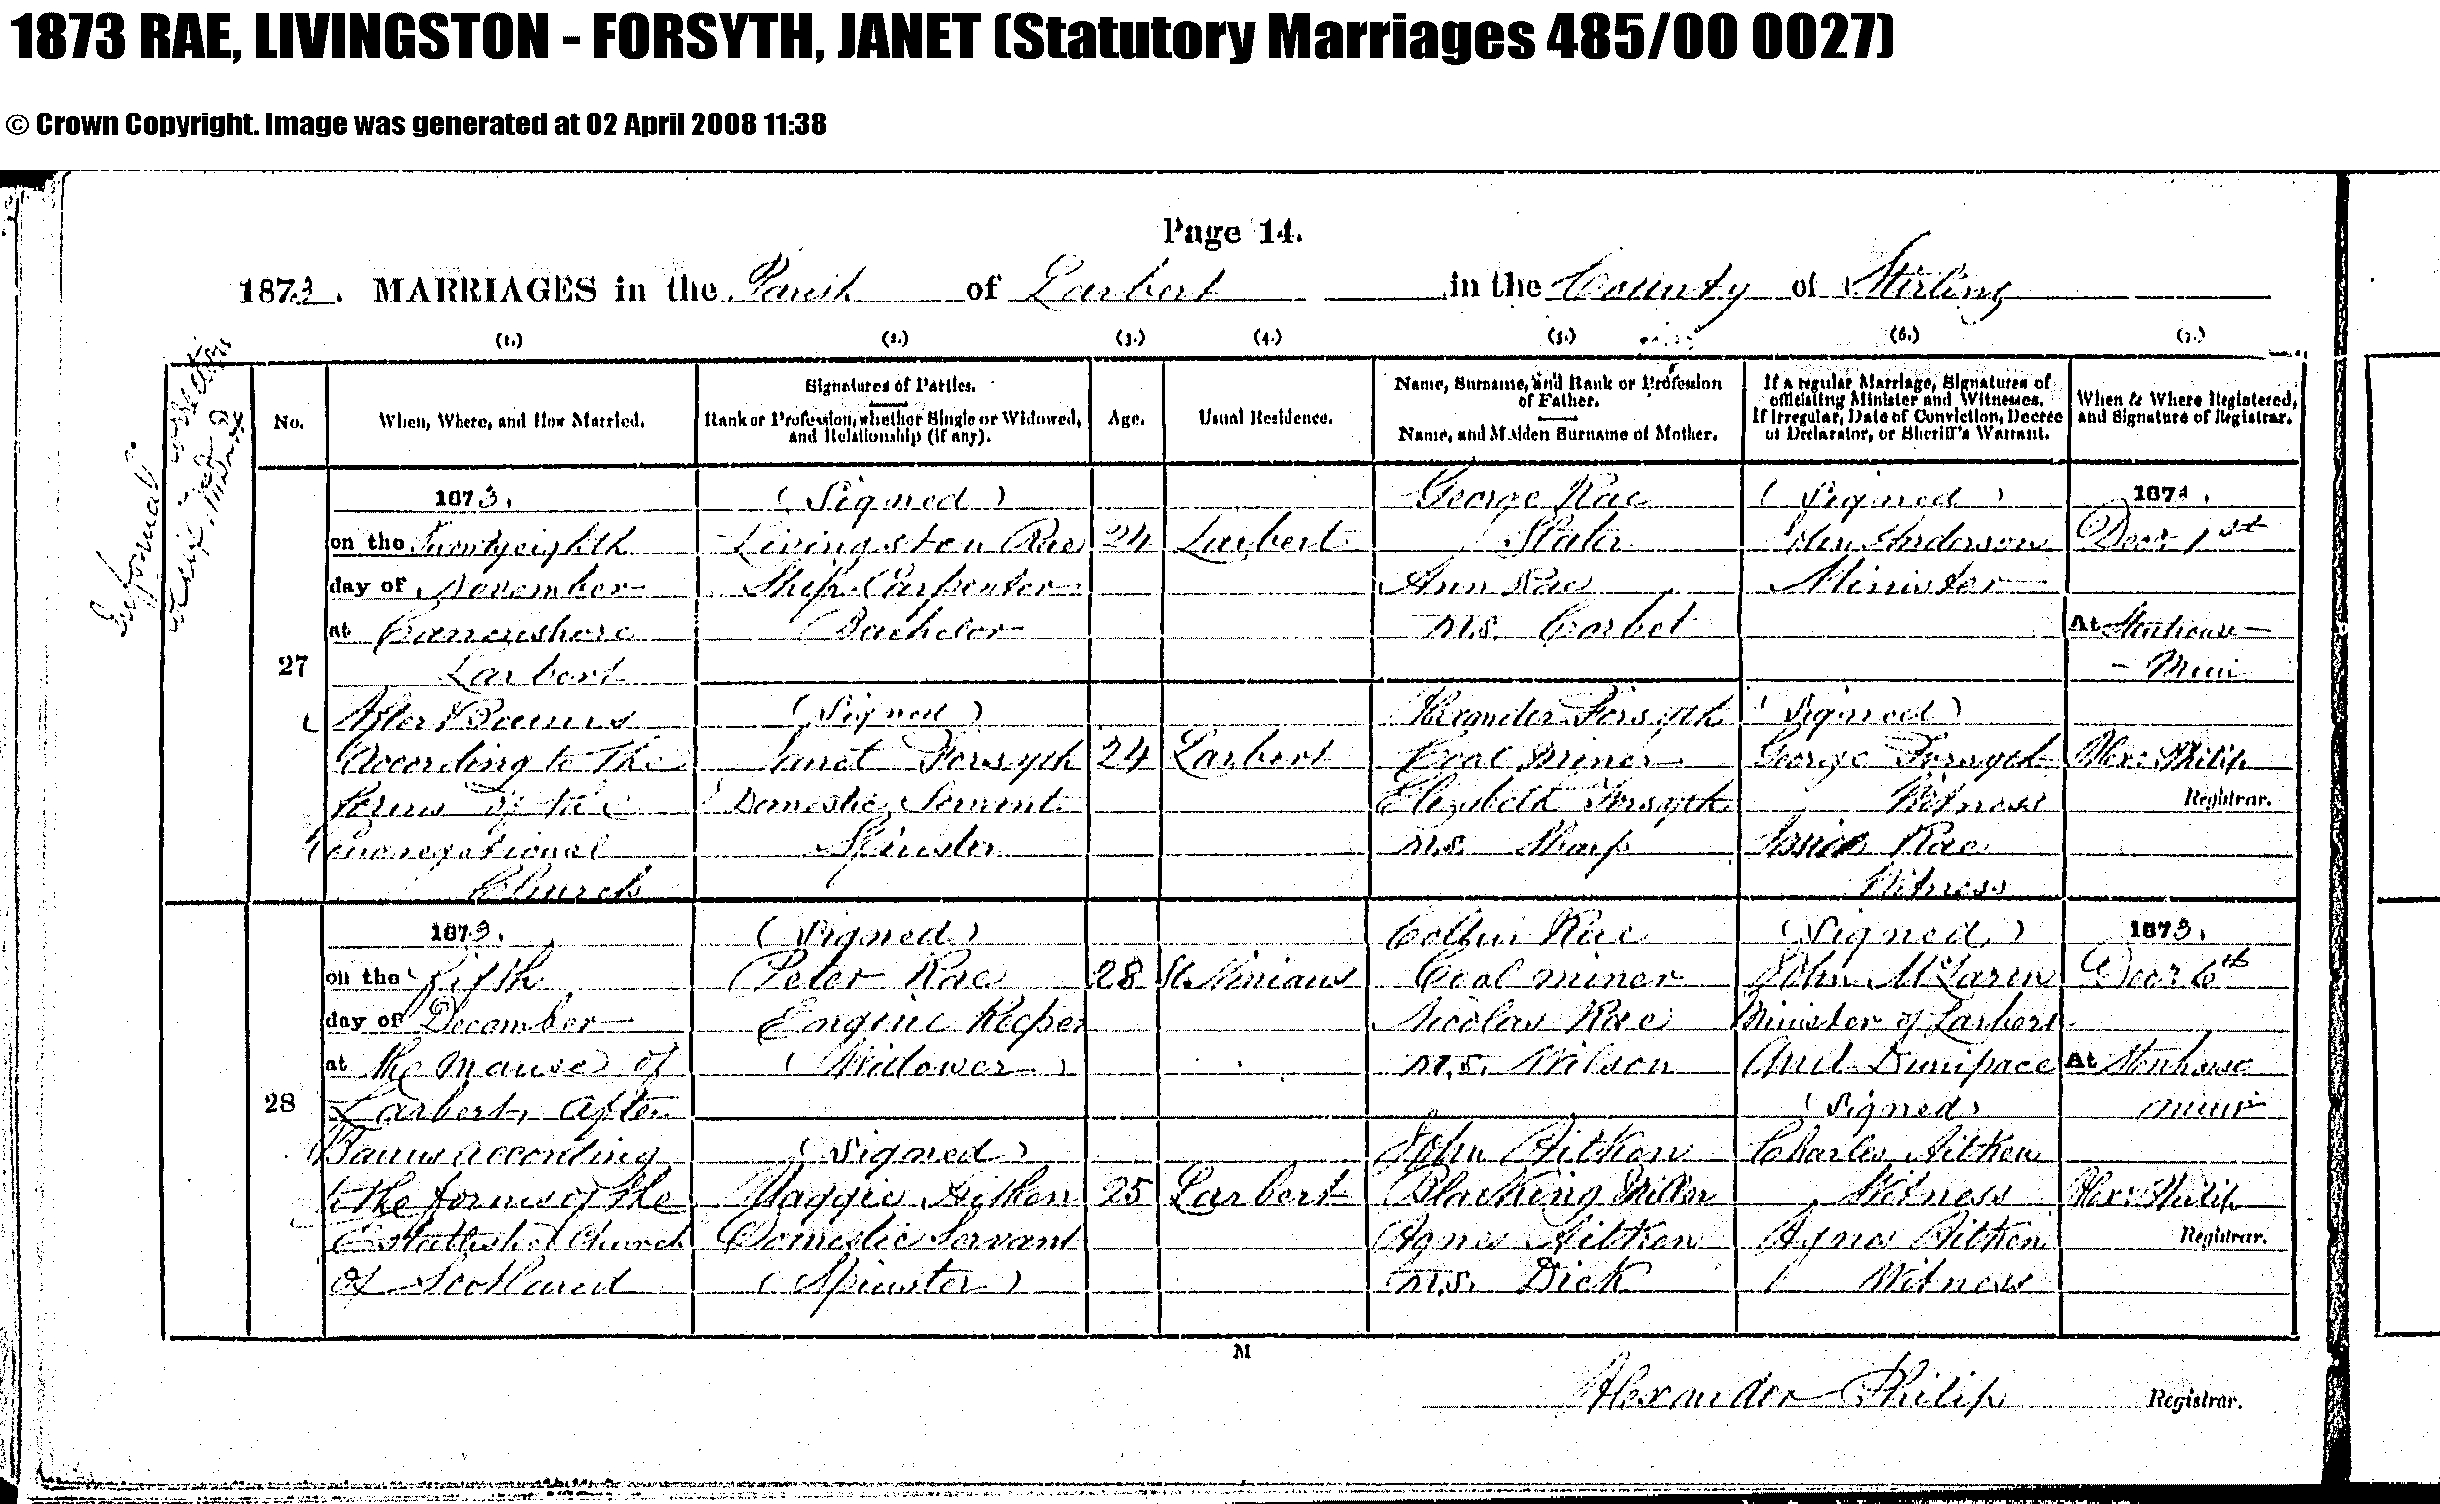 1873 RAE, LIVINGSTON - FORSYTH, JANET (Statutory Marriages 485/00 0027)
© Crown Copyright. Image was generated at 02 April 2008 11:38
Page 14.
1873. MARRIAGES in the Parish of Larbert in the County of Stirling
(1.) (2.) (3.) (4.) (5.) (6.) (7.)
No.
When, Where, and How Married.
Signatures of Parties.
Rank or Profession, whether Single or Widowed,
and Relationship (if any).
Age.
Usual Residence.
Name, Surname, and Rank or Profession
of Father.
Name, and Maiden Surname of Mother.
If a regular Marriage, Signatures of
officiating Minister and Witnesses.
If Irregular, Date of Conviction, Decree
of Declarator, or Sheriff's Warrant.
When & Where Registered,
and Signature of Registrar.
Informal
27
1873.
on the Twentyeighth
day of November
at
Larbert
After Banns
According to the
Forms of the
Congregational
Church
(Signed)
Livingston Rae
Ship Carpenter
Bachelor
(Signed)
Janet Forsyth
Domestic Servant
Spinster
24
24
Larbert
Larbert
George Rae
Slater
Ann Rae
M.S. Corbet
Alexander Forsyth
Coal Miner
Elizabeth Forsyth
M.S. Sharp
(Signed)
John Anderson
Minister
(Signed)
George Forsyth
Witness
Rae
Witness
1873.
Decr 1st
At Stenhouse-
- Muir
Alexr Philip
Registrar.
28
1873.
on the Fifth
day of December
at the Manse of
Larbert, After
Banns according
to the forms of the
Established Church
of Scotland
(Signed)
Peter Rae
Engine Keeper
(Widower)
(Signed)
Maggie Aitken
Domestic Servant
(Spinster)
28
25
St. Ninians
Larbert
Rae
Coal miner
Nicolas Rae
M.S. Wilson
John Aitken
Blacking Miller
Agnes Aitken
M.S. Dick
(Signed)
John McLaren
Minister of Larbert
And Dunipace
(Signed)
Charles Aitken
Witness
Agnes Aitken
Witness
1873.
Decr 6th
At Stenhouse
muir
Alexr Philip
Registrar.
M
Alexander Philip Registrar.